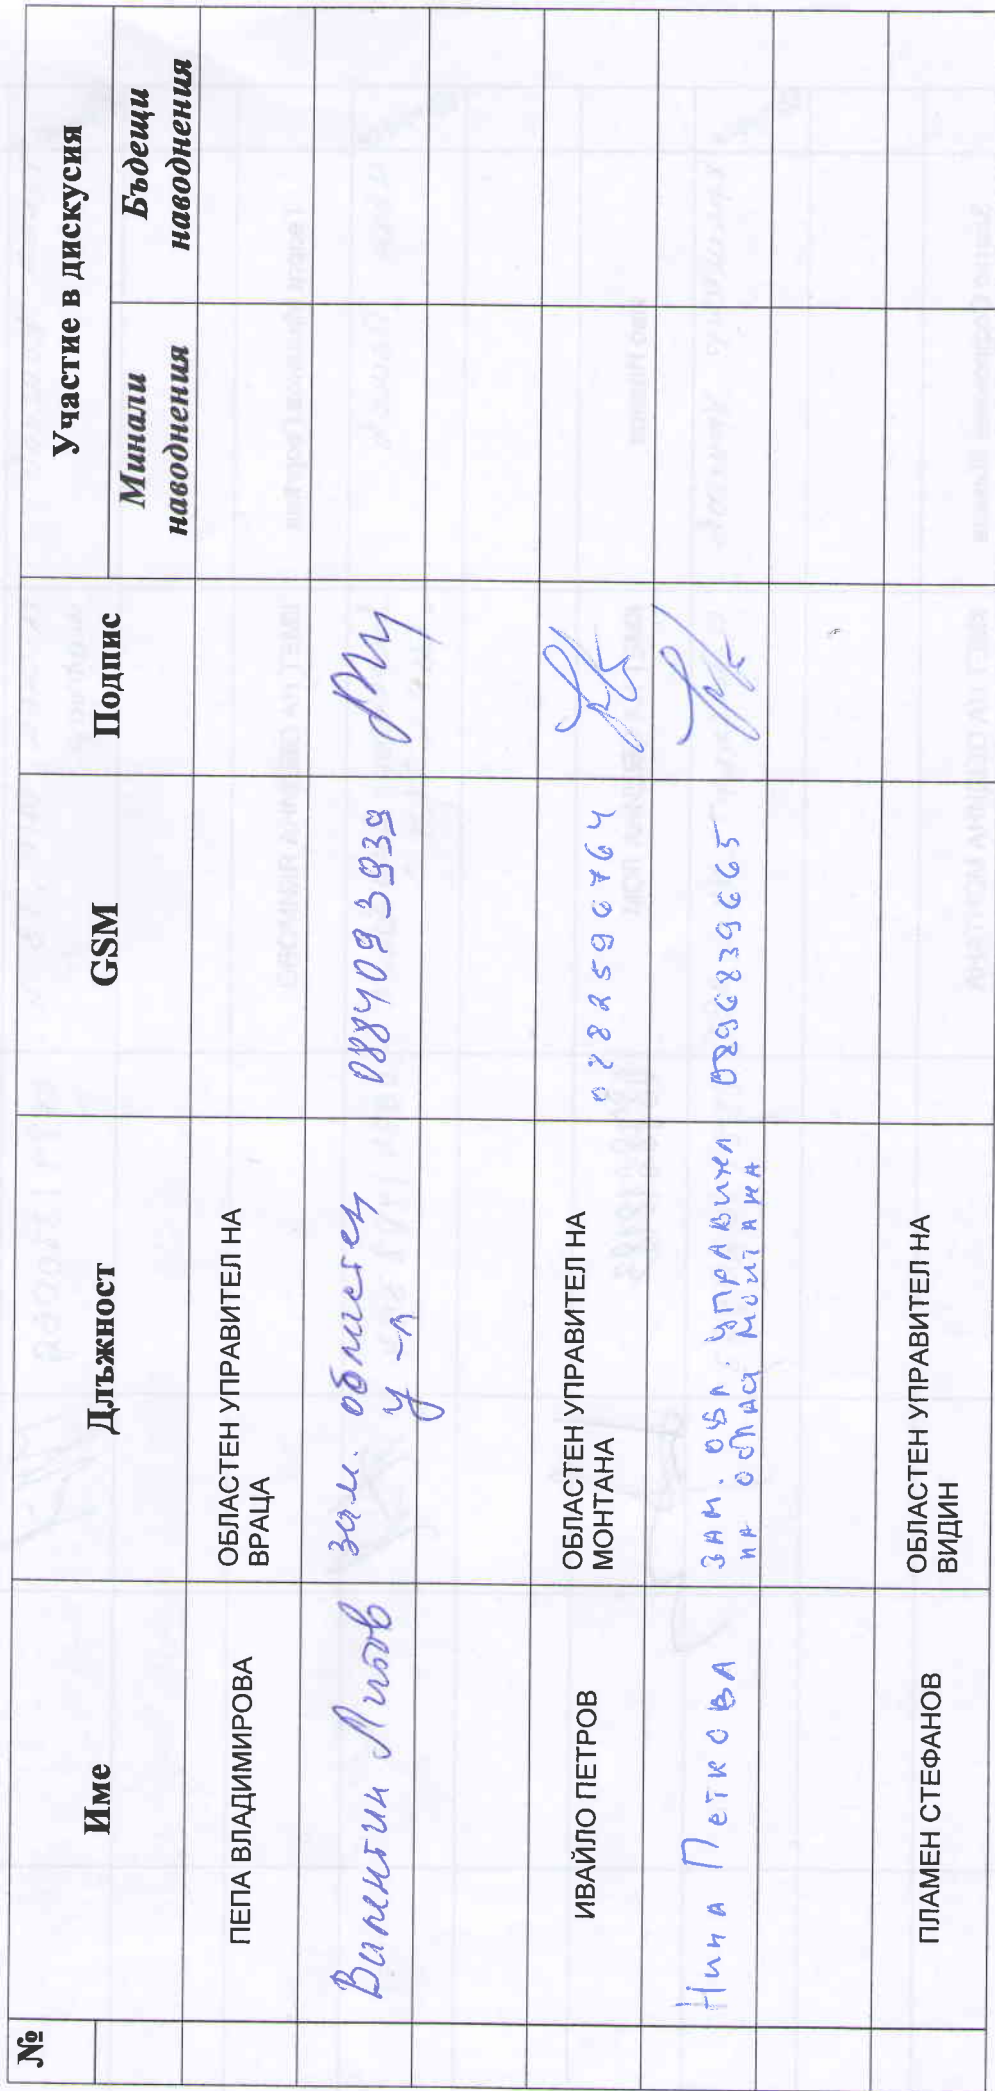 № Име Длъжност GSM Подпис Участие в дискусия
Минали наводнения Бъдещи наводнения
ПЕПА ВЛАДИМИРОВА ОБЛАСТЕН УПРАВИТЕЛ НА
ВРАЦА
Валентин зам. областен 0884093939
у-л
ИВАЙЛО ПЕТРОВ ОБЛАСТЕН УПРАВИТЕЛ НА
МОНТАНА
Нина Петкова ЗАМ. ОБЛ. УПРАВИТЕЛ
НА МОНТАНА
ПЛАМЕН СТЕФАНОВ ОБЛАСТЕН УПРАВИТЕЛ НА
ВИДИН